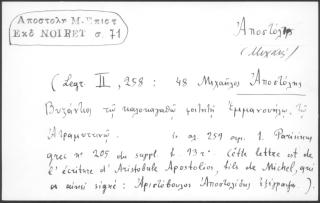 Αποστολη Μ. Επιστ
Εκδ NOIRET σ. 71
Ἀποστόλης
(Μιχαήλ)
(Legr. II, 258: 48 Μιχαῆλος Ἀποστόλης
Βυζάντιος τῷ καλοκαγαθῷ φοιτητῇ Ἐμμανουήλῳ τῷ
Ἀτραμυττηνῷ σελ. 259 σημ. 1. Parisinus
grec nº 205 du suppl. f. 93 r (Cette lettre est de
l'écriture d'Aristobule Apostolios, fils de Michel, qui
a ainsi signé: Ἀριστόβουλος Ἀποστολίδης ἐξέγραψα).